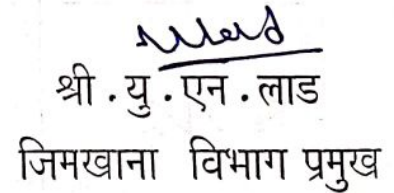 श्री . यु . एन . लाड
जिमखाना विभाग प्रमुख